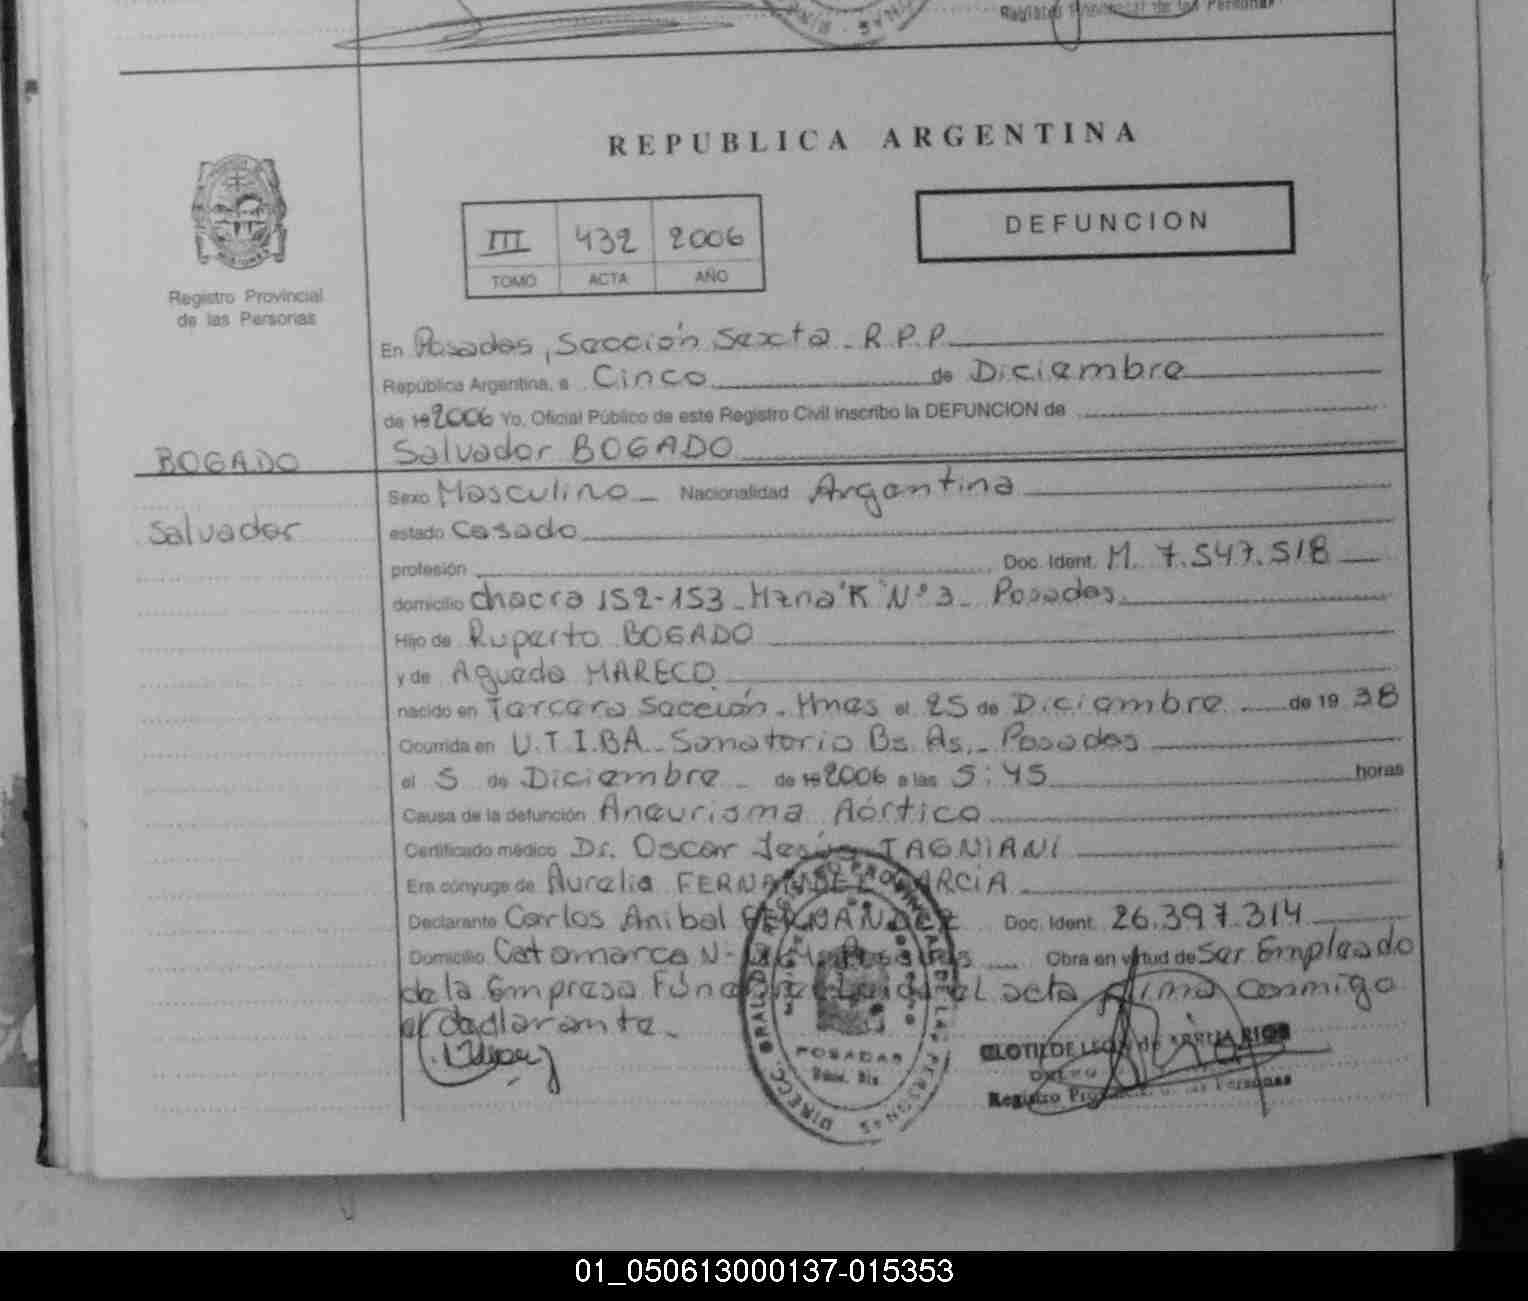 Registro Provincial de las Personas
REPUBLICA ARGENTINA
III 432 2006
TOMO ACTA AÑO
DEFUNCION
MISIONES
Registro Provincial
de las Personas
En Posadas, Sección Sexta - R.P.P.
República Argentina, a Cinco de Diciembre
de 19 2006 Yo, Oficial Público de este Registro Civil inscribo la DEFUNCION de
BOGADO
Salvador BOGADO
Sexo Masculino - Nacionalidad Argentina
Salvador
estado Casado
profesión Doc. Ident. M. 7.547.518
domicilio chacra 152-153 - Mzna "K" Nº 3 - Posadas
Hijo de Ruperto BOGADO
y de Agueda MARECO
nacido en Tercera Sección - Mnes el 25 de Diciembre de 19 38
Ocurrida en U.T.I.BA - Sanatorio Bs. As. - Posadas
el 5 de Diciembre - de 19 2006 a las 5:45 horas
Causa de la defunción Aneurisma Aórtico
Certificado médico Dr. Oscar Jesús TAGNIANI
Era cónyuge de Aurelia FERNANDEZ GARCIA
Declarante Carlos Anibal FERNANDEZ Doc. Ident. 26.397.314
Domicilio Catamarca N- Posadas Obra en virtud de Ser Empleado
de la Empresa Fúnebre Leida el acta firma conmigo
el declarante -
DIRECC. GRAL. DEL REGISTRO PROVINCIAL DE LAS PERSONAS
POSADAS
CLOTILDE LEON de RIOS
Registro Provincial de las Personas
01_050613000137-015353